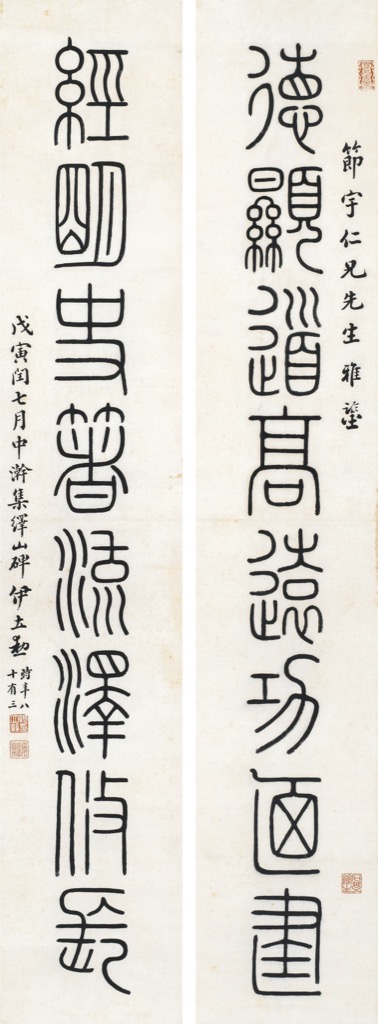 節宇仁兄先生雅鑒
德顯道高遠功廼建
經明史著流澤攸長
戊寅閏七月中澣集繹山碑 伊立勳 時年八
十有三